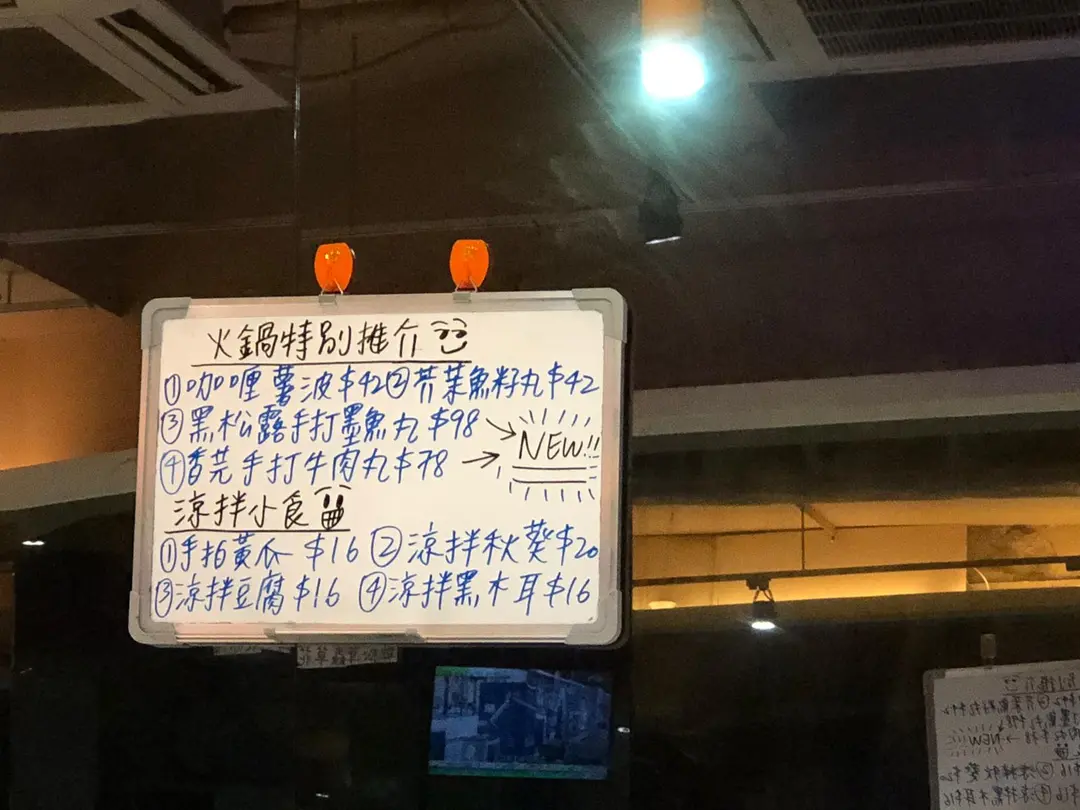 火鍋特別推介
①咖喱薯波$42②芥茉魚籽丸$42
③黑松露手打墨魚丸 $98
NEW!!
④香芫手打牛肉丸$78
涼拌小食
①手拍黃瓜 $16 ②涼拌秋葵$20
③涼拌豆腐$16 ④涼拌黑木耳$16